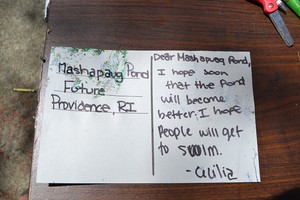 Mashapaug Pond
Future
Providence, RI
Dear Mashapaug Pond,
I hope soon
that the Pond
will become
better. I hope
People will get
to swim.
-Cecilia